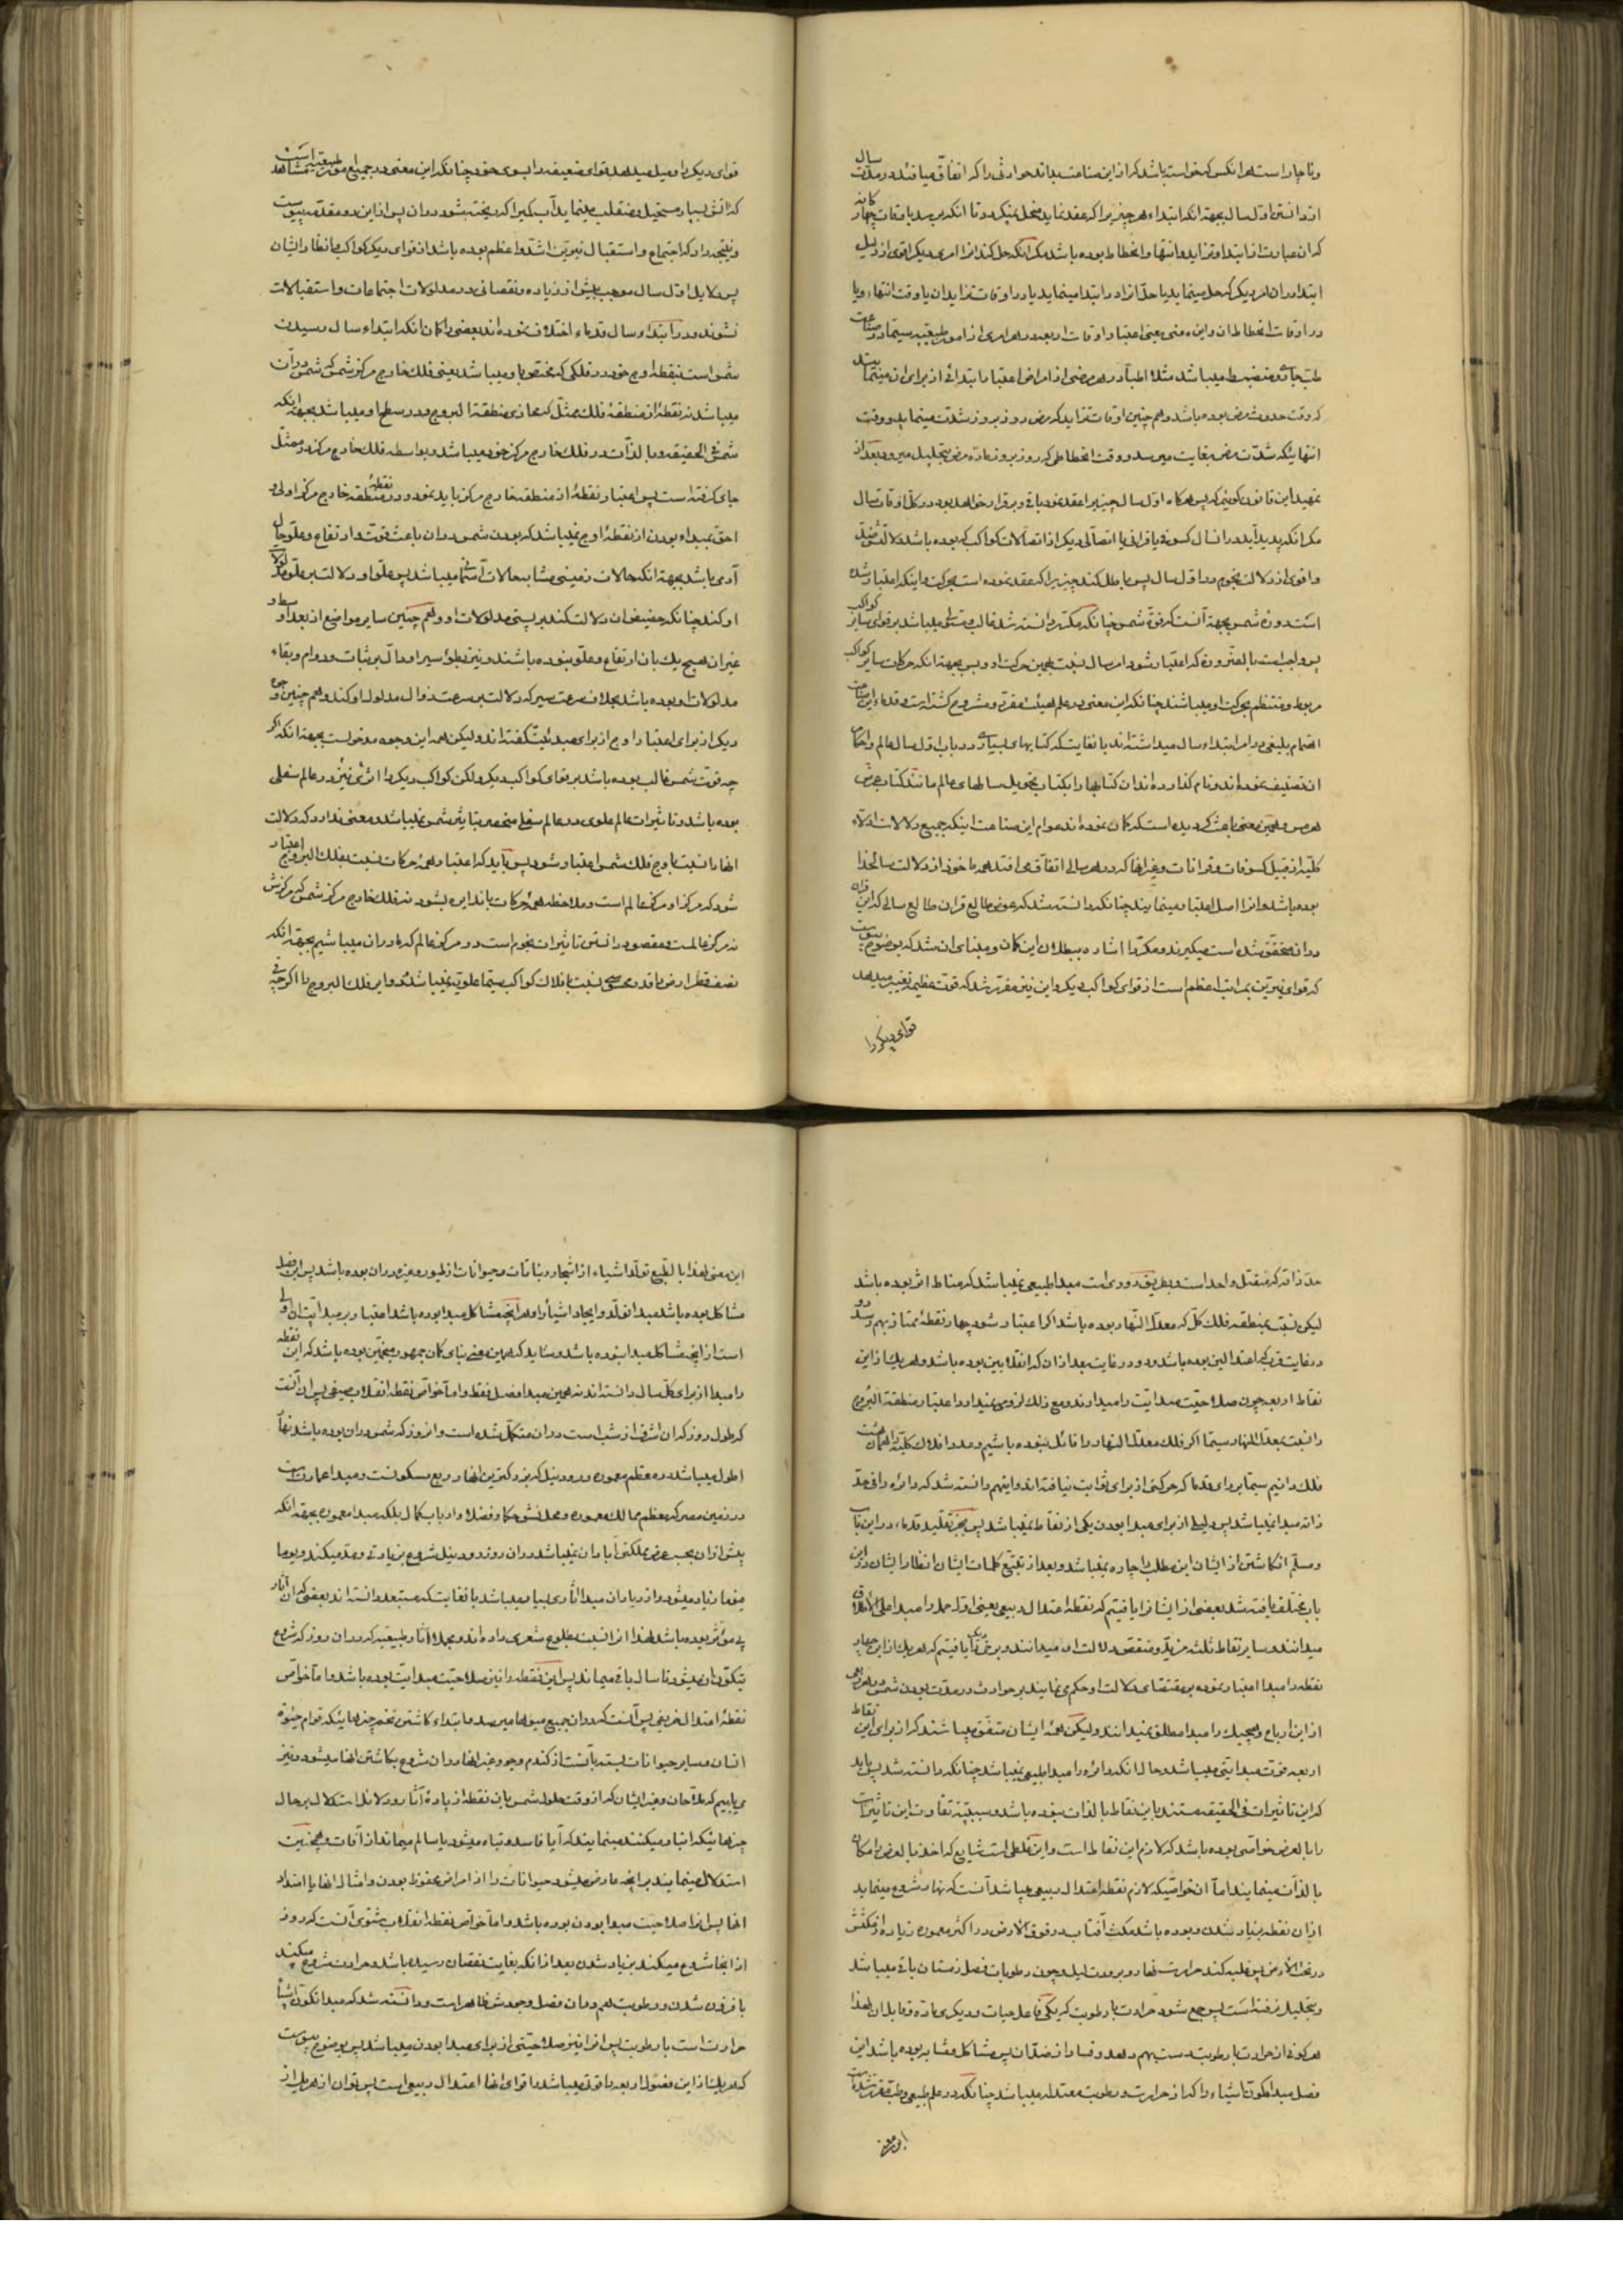 وناچار است هر انکس که خواسته باشد که از این صناعت بداند حوادثی را که اتفاق میافتد در مدت سال
از دانستن اول سال بجهة انکه ابتداء هر چیز را که عقد نماید منحل نمیکردد تا انکه برسد باوقات چهار کانه
که ان عبارت از ابتدا و تزاید و انتها و انحطاط بوده باشد مکر انکه حل کند انرا امری دیکر اقوی از دلیل
ابتدا و ان امر دیکر که حل مینماید یا حل انرا در ابتدا مینماید یا در اوقات تزاید ان یا وقت انتهاء و یا
در اوقات انحطاط ان و این معنی یعنی اعتبار اوقات اربعه در هر امری از امور طبیعیه سیما در صناعت
طب جاری و منضبط میباشد مثلا اطباء در هر مرضی از امراض اعتبار ابتدائی از برای ان مینمایند
که وقت حدوث مرض بوده باشد و هم چنین اوقات تزاید که مرض روز بروز شدت مینماید و وقت
انتها ینکه شدت مرض بغایت میرسد و وقت انحطاطی که روز بروز ماده مرض بتحلیل میرود بعد از
تمهید این قانون کوئیم که پس هرکاه اول سال چیزیرا عقد نمود باقی و برقرار خواهد بود در کل اوقات سال
مکر انکه پدید آید در انسال کسوفی یا قرانی یا اتصالی دیکر از اتصالات کواکب که بوده باشد دلالتش
واقوی از دلالت نجوم در اول سال پس باطل کند چیزیرا که عقد نموده است بحرکت و اینکه اعتبار شده
است دوره شمس بجهة آنست که قوة شمس چنانکه مکرر دانسته شد غالب و مستولی میباشد بر قوای سایر کواکب
پس واجب است بالضروره که اعتبار شود امر سال نسبت بهمین حرکت او و بس بجهة انکه حرکات سایر کواکب
مربوط و منتظم بحرکت او میباشند چنانکه این معنی در علم هیئت مقرر و مشروح کشته است و قدماء این صناعت
اهتمام بلیغی در امر ابتداء سال میداشته اند بانغایت که کتابهای بسیاری در باب اول سال عالم و احکام
ان تصنیف نموده اند و نام کذارده اند ان کتابها را بکتاب تحویل سالهای عالم مانند کتاب عرض
هرمس و همین معنی باعث کردیده است که کمان نموده اند عوام این صناعت اینکه جمیع دلالات ادلاء
کلیه از قبیل کسوفات و قرانات و غیر انها که در هر سالی اتفاق می افتد همه ماخوذ از دلالت سالخدا
بوده باشد و انرا اصل اعتبار مینمایند چنانکه دانسته شد که عوض طالع قران طالع سالی که این قران
در ان محقق شده است میکیرند و مکررا اشاره ببطلان این کمان و مبنای ان شد که بوضوح پیوست
که قوای نیرین بمراتب اعظم است از قوای کواکب دیکر و این نیز مقرر شد که قوت عظیمه تغییر میدهد
قوای دیکر را
قوای دیکر را و میل میدهد قوای ضعیفه را بسوی خود چنانکه این معنی در جمیع امور طبیعیه مشاهد است
که اتش بسیار مستحیل و منقلب مینماید آب کمیرا که ریخته شود در ان پس از این دو مقدمه پیوست
و نتیجه داد که اجتماع و استقبال نیرین اشد و اعظم بوده باشد از قوای دیکر کواکب و انظار ایشان
پس دلایل اول سال موجب بیش از زیاده و نقصانی در مدلولات اجتماعات و استقبالات
نشوند و در ابتداء سال قدماء اختلاف نموده اند بعضی را کمان انکه ابتداء سال رسیدن
شمس است بنقطه اوج خود در فلکی که مختص باو میباشد یعنی فلک خارج مرکز شمس که شمس در ان
میباشد نه نقطه از منطقه فلک ممثل که محاذی منطقة البروج و در سطح او میباشد بجهة انکه
شمس فی الحقیقه و بالذات در فلک خارج مرکز خود میباشد و بواسطه فلک خارج مرکز در ممثل
جای کرفته است پس اعتبار نقطه از منطقه خارج مرکز باید نمود و در منطقه خارج مرکز نقطه اولی و
احق بمبداء بودن از نقطه اوج نمیباشد که بودن شمس در ان باعث قوت و ارتفاع و علو حال
آدمی باشد بجهة انکه حالات زمینی مشابه حالات آسمانی میباشد پس علو او دلالت بر علو مدلولات
او کند چنانکه حضیض ان دلالت کند بر پستی مدلولات او و هم چنین سایر مواضع از بعد اوسط و
غیر ان هیچ یک بان ارتفاع و علو نبوده باشند و نیز بطوء سیر او دال بر ثبات و دوام و بقاء
مدلولات او بوده باشد بخلاف سرعت سیر که دلالت بر سرعت زوال مدلول او کند و هم چنین وجوه
دیکر از برای اعتبار اوج از برای مبدئیت کفته اند ولیکن همه این وجوه مدخولست بجهة انکه اکر
چه قوت شمس غالب بوده باشد بر قوای کواکب دیکر ولکن کواکب دیکر را اثری نیز در عالم سفلی
بوده باشد و تاثیرات عالم علوی در عالم سفلی منحصر بتاثیر شمس نمیباشد و معنی ندارد که دلالت
انها را نسبت باوج فلک شمس اعتبار شود پس باید که اعتبار همه حرکات نسبت بفلک البروج اعتبار
شود که مرکز او مرکز عالم است و ملاحظه همه حرکات باندایره بشود نه فلک خارج مرکز شمس که مرکزش
نه مرکز عالمست و مقصود دانستن تاثیرات نجوم است در مرکز عالم که ما در ان میباشیم بجهة انکه
نصف قطر ارض را قدر محسوسی نسبت بافلاک کواکب سیما علویه نمیباشد و این فلک البروج را اکرچه فی
حد ذاته که متصل واحد است و بطریق دوری است مبداء طبیعی نمیباشد که مناط اثر بوده باشد
لیکن نسبت بمنطقه فلک کل که معدل النهار بوده باشد اکر اعتبار شود چهار نقطه ممتاز بهم رسد دو
در غایت قرب که اعتدالین بوده باشد و دو در غایت بعد از ان که انقلابین بوده باشد و هر یک از این
نقاط اربعه چون صلاحیت مبدائیت را میدارند و مع ذلک لزومی نمیدارد اعتبار منطقة البروج
را نسبت بمعدل النهار سیما اکر فلک معدل النهار را قائل نبوده باشیم و مدار افلاک کلیه را همان هشت
فلک دانیم سیما بر رای قدما که حرکتی از برای ثوابت نیافته اند و اینهم دانسته شد که دایره را فی حد
ذاته مبدا نمیباشد پس دلیلی از برای مبدا بودن یکی از نقاط نمیباشد پس بجز تقلید قدماء در این باب
و مسلم انکاشتن از ایشان این مطلب را چاره نمیباشد و بعد از تتبع کلمات ایشان انظار ایشان در این
باب مختلف یافته شد بعضی از ایشانرا یافتیم که نقطه اعتدال ربیعی یعنی اول حمل را مبدا علی الاطلاق
میدانند و سایر نقاط ثلثه مزید و منقص دلالت او میدانند و برخی را یافتیم که هر یک از این چهار
نقطه را مبدا اعتبار نموده بمقتضای دلالت او حکم می نمایند بر حوادث در مدت بودن شمس در هر ربعی
از این ارباع و هیچیک را مبدا مطلق نمیدانند ولیکن همه ایشان متفق میباشند که از برای این نقاط
اربعه قوت مبدائیتی میباشد و حال انکه دائره را مبدا طبیعی نمیباشد چنانکه دانسته شد پس باید
که این تاثیرات فی الحقیقه مستند باین نقاط بالذات نبوده باشد و سببیت تفاوت این تاثیرات
را بالعرض خواصی بوده باشد که لازم این نقاط است و این غلطی است شایع که اخذ ما بالعرض را مکان
بالذات مینمایند اما آن خواصیکه لازم نقطه اعتدال ربیعی میباشد آنست که نهار شروع مینماید
از ان نقطه بزیاد شدن و بوده باشد مکث آفتاب در فوق الارض در اکثر معموره زیاده از مکثش
در تحت الارض پس غلبه کند حرارت نهار و برودت لیل و چون رطوبات فصل زمستان باقی میباشد
و بتحلیل نرفته است پس جمع شود حرارت با رطوبت که یکی فاعل حیات و دیکری ماده و قابل ان لهذا
هر کونی از حرارت با رطوبت دست بهم دهد و فساد از ضد ان پس مشاکل و مشابه بوده باشد این
فصل مبدا تکون اشیاء را که از حرارت و رطوبت معتدله میباشد چنانکه در علم طبیعی و طب مقرر شده است
این معنی
این معنی لهذا بالطبع تولد اشیاء از اشجار و نباتات و حیوانات از طیور و غیره در ان بوده باشد پس این فصل
مشاکل بوده باشد مبدا تولد و ایجاد اشیاء را و هر انچه مشاکل مبدا بوده باشد اعتبار بر مبدائیت ان اولی
است از انچه مشاکل مبدا نبوده باشد و شاید که همین معنی بنای کمان جمهور منجمین بوده باشد که این نقطه
را مبدا از برای کل سال دانسته اند نه همین مبدا فصل فقط و اما خواص نقطه انقلاب صیفی پس ان آنست
که طول روز که ان اشرف از شب است در ان متکامل شده است و انروز که شمس در ان بوده باشد نهار
اطول میباشد در معظم معموره و رود نیل که بزرکترین انهار ربع مسکونست و مبدا عمارت است
در زمین مصر که معظم ممالک معموره و محل نشو حکما و فضلا و ارباب کمال بلکه مبدا معموره بجهة انکه
پیش از ان بحسب عرض مملکتی آبادان نمیباشد در ان روز رود نیل شروع بزیادتی و مد میکند و یوما
فیوما زیاد میشود و از زیاد ان مبدا اثاری بسیار میباشد بانغایت که مستبعد دانسته اند بعضی که ان آثار
بی مؤثر بوده باشد لهذا انرا نسبت بطلوع شعری داده اند و بجمله آثار طبیعیه که در ان روز که شروع
بتکون ان میشود تا سال باقی میماند پس این نقطه را نیز صلاحیت مبدائیت بوده باشد و اما خواص
نقطه اعتدال خریفی پس آنست که در ان جمیع میوها میرسد و ابتداء کاشتن تخم چیزها ینکه قوام حیوة
انسان و سایر حیوانات بسته بآنست از کندم و جو و غیر انها در ان شروع بکاشتن انها میشود و نیز
می یابیم که ملاحان و غیر ایشان که از وقت حلول شمس باین نقطه از پاره آثار و دلائل استدلال بر حال
چیزهائیکه انبار میکنند مینمایند که آیا فاسد و تباه میشود یا سالم میماند از آفات و همچنین
استدلال مینمایند بر انچه عارض میشود حیوانات را از امراض و محفوظ بودن و امثال انها یا امتداد
انها پس انرا صلاحیت مبدا بودن بوده باشد و اما خواص نقطه انقلاب شتوی آنست که روز
از انجا شروع میکند بزیاد شدن بعد از انکه بغایت نقصان رسیده باشد و حرارت شروع میکند
بافزون شدن و رطوبت هم در ان فصل وجودش ظاهر است و دانسته شد که مبدا تکون اشیاء
حرارت است با رطوبت پس انرا نیز صلاحیتی از برای مبدا بودن میباشد پس بوضوح پیوست
که هر یک از این فصول اربعه را قوتی میباشد و اقوای انها اعتدال ربیعی است پس توان از هر یک از